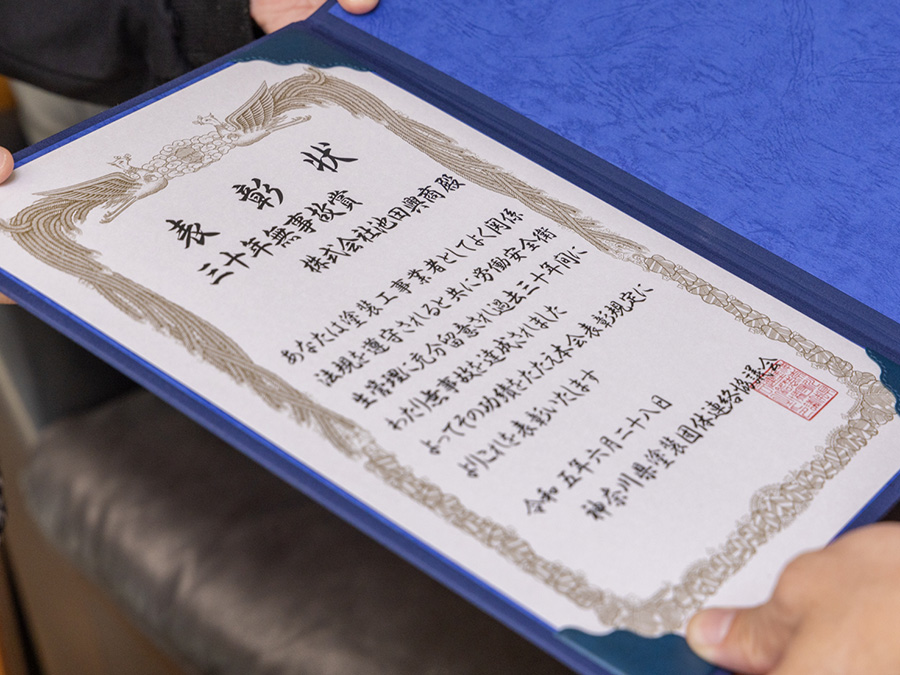 表彰状
三十年無事故賞
株式会社池田興商殿
あなたは塗装工事業者としてよく関係
法規を遵守されると共に労働安全衛
生管理に充分留意され過去三十年間に
わたり無事故を達成されました
よってその功績をたたえ本会表彰規定に
よりこれを表彰いたします
令和五年六月二十八日
神奈川県塗装団体連絡協議会